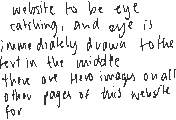 website to be eye
catching, and eye is
immediately drawn to the
text in the middle
there are Hero images on all
other pages of this website
for